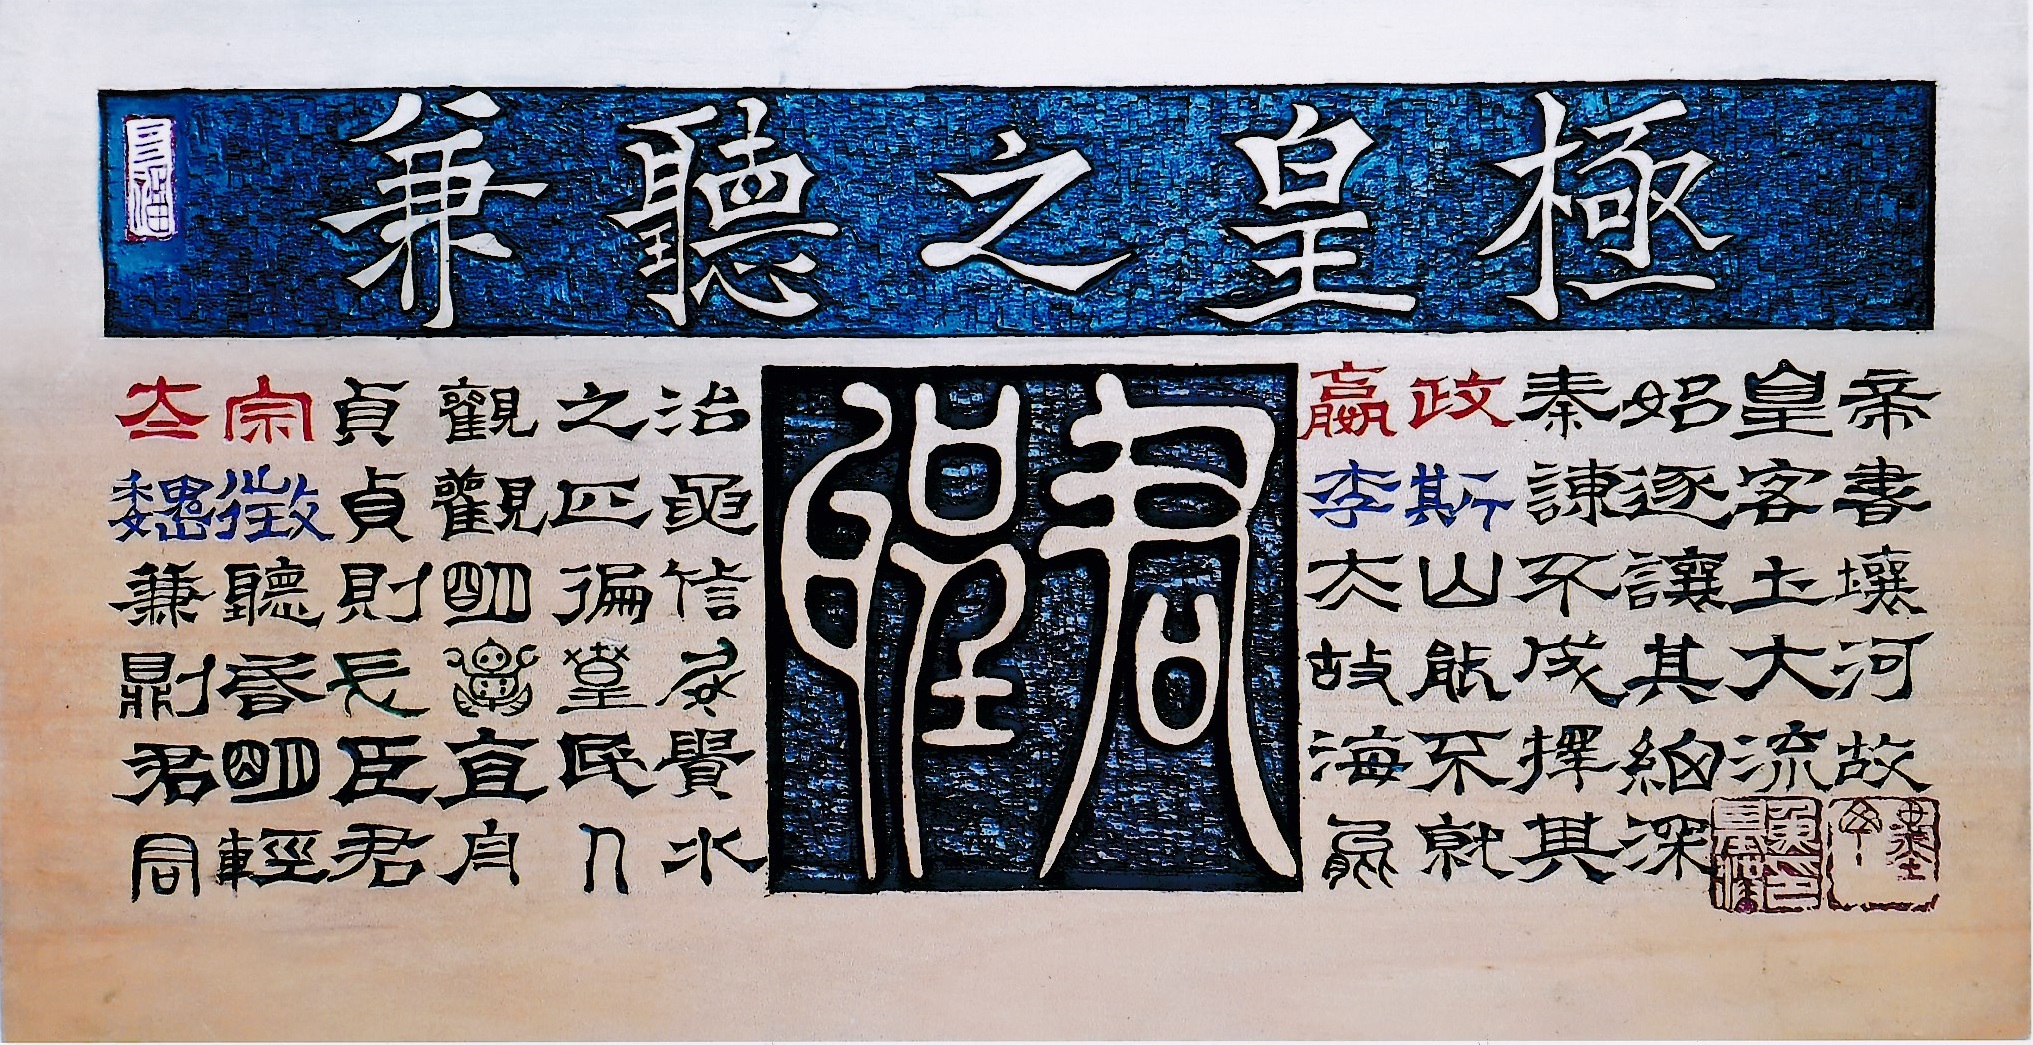 兼聽之皇極
太宗貞觀之治
魏徵貞觀匹
兼聽則明徧信
則昏長皇
君明臣直民
同輕君人水
聖君
嬴政秦始皇帝
李斯諫逐客書
大山不讓土壤
故能成其大河
海不擇細流故
能就其深